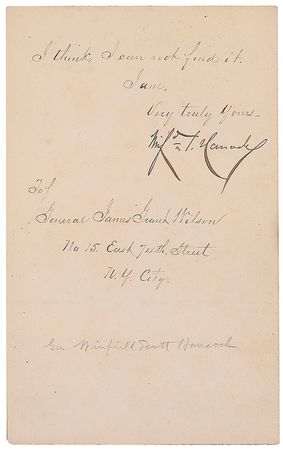 I think I can not find it.
I am,
Very truly yours
Winfd S. Hancock
To/
General James Grant Wilson
No 15. East 74th Street
N.Y. City.
Gen Winfield Scott Hancock